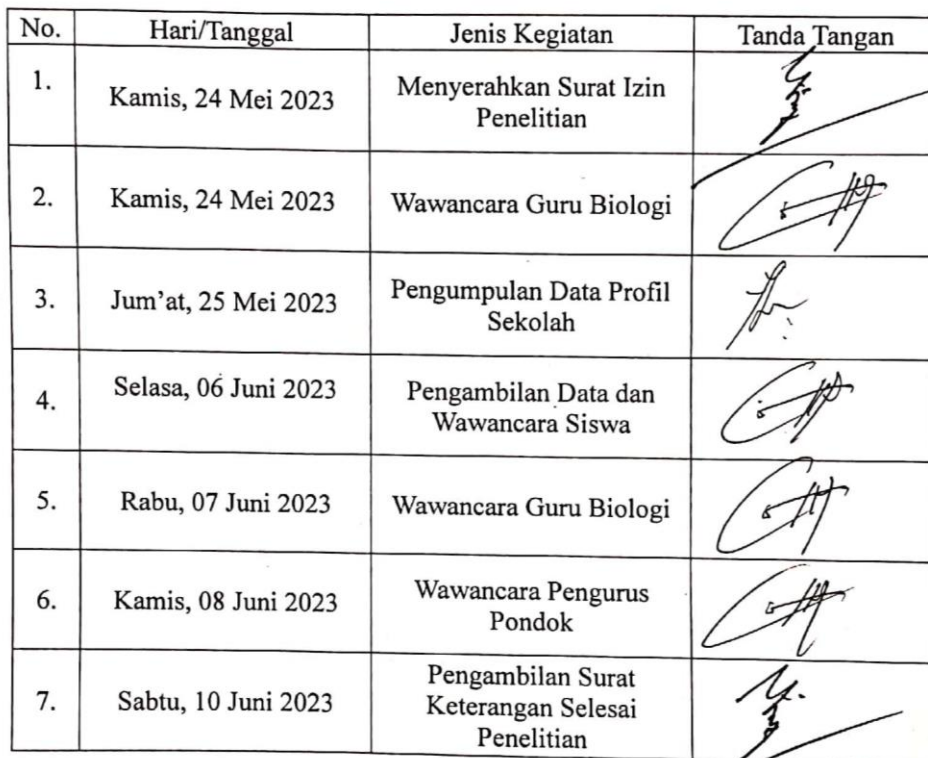 No. Hari/Tanggal Jenis Kegiatan Tanda Tangan
1. Kamis, 24 Mei 2023 Menyerahkan Surat Izin
Penelitian
2. Kamis, 24 Mei 2023 Wawancara Guru Biologi
3. Jum'at, 25 Mei 2023 Pengumpulan Data Profil
Sekolah
4. Selasa, 06 Juni 2023 Pengambilan Data dan
Wawancara Siswa
5. Rabu, 07 Juni 2023 Wawancara Guru Biologi
6. Kamis, 08 Juni 2023 Wawancara Pengurus
Pondok
7. Sabtu, 10 Juni 2023 Pengambilan Surat
Keterangan Selesai
Penelitian